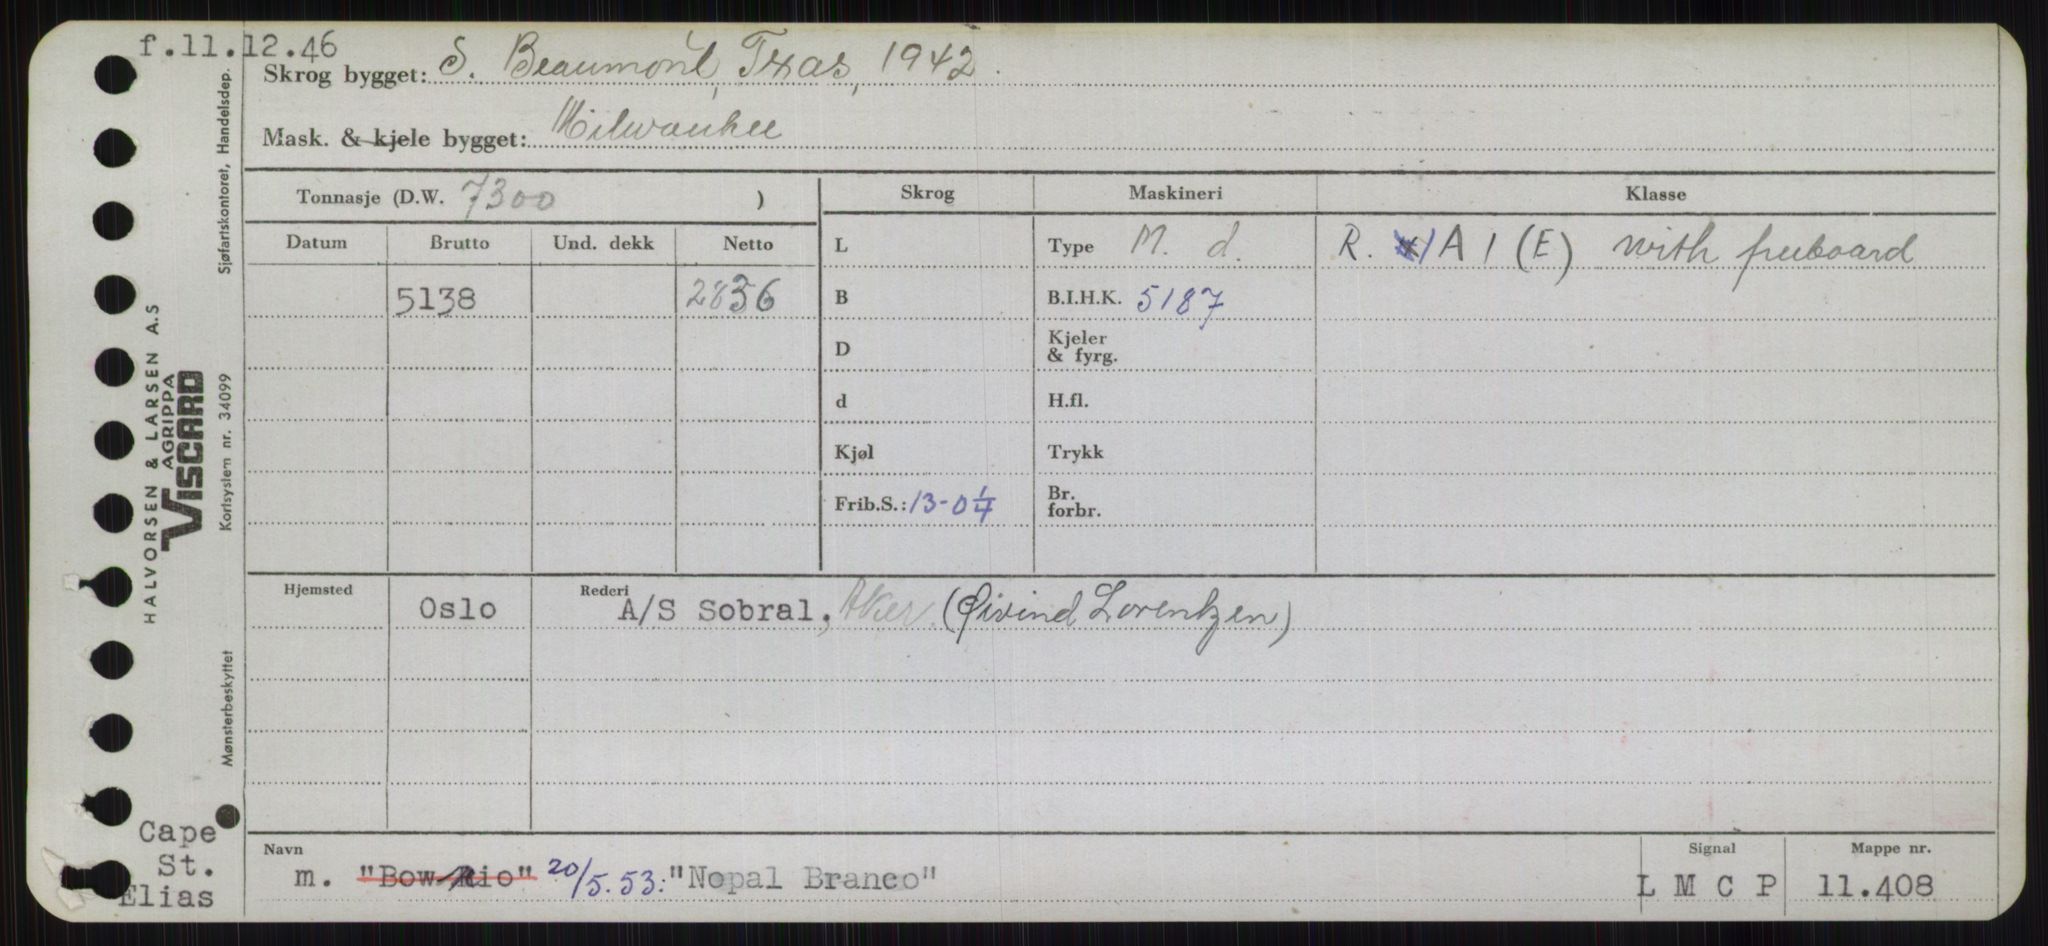 f.11.12.46
Skrog bygget: S. Beaumont, Texas, 1942.
Mask. & kjele bygget: Milwaukee
Tonnasje (D.W. 7300 )
Skrog Maskineri Klasse
Datum Brutto Und. dekk Netto
L Type M. d. R. 1 A 1 (E) with freeboard
5138 2836
B B.I.H.K. 5187
D Kjeler & fyrg.
d H.fl.
Kjøl Trykk
Frib.S.: 13-0 1/4 Br. forbr.
Hjemsted Oslo Rederi A/S Sobral, Aker. (Øivind Lorentzen)
Navn Signal Mappe nr.
m. "Bow Rio" 20/5.53: "Nopal Branco" L M C P 11.408
Cape
St.
Elias
HALVORSEN & LARSEN A.S
AGRIPPA
VISCARD
Sjøfartskontoret, Handelsdep.
Kortsystem nr. 34099
Mønsterbeskyttet